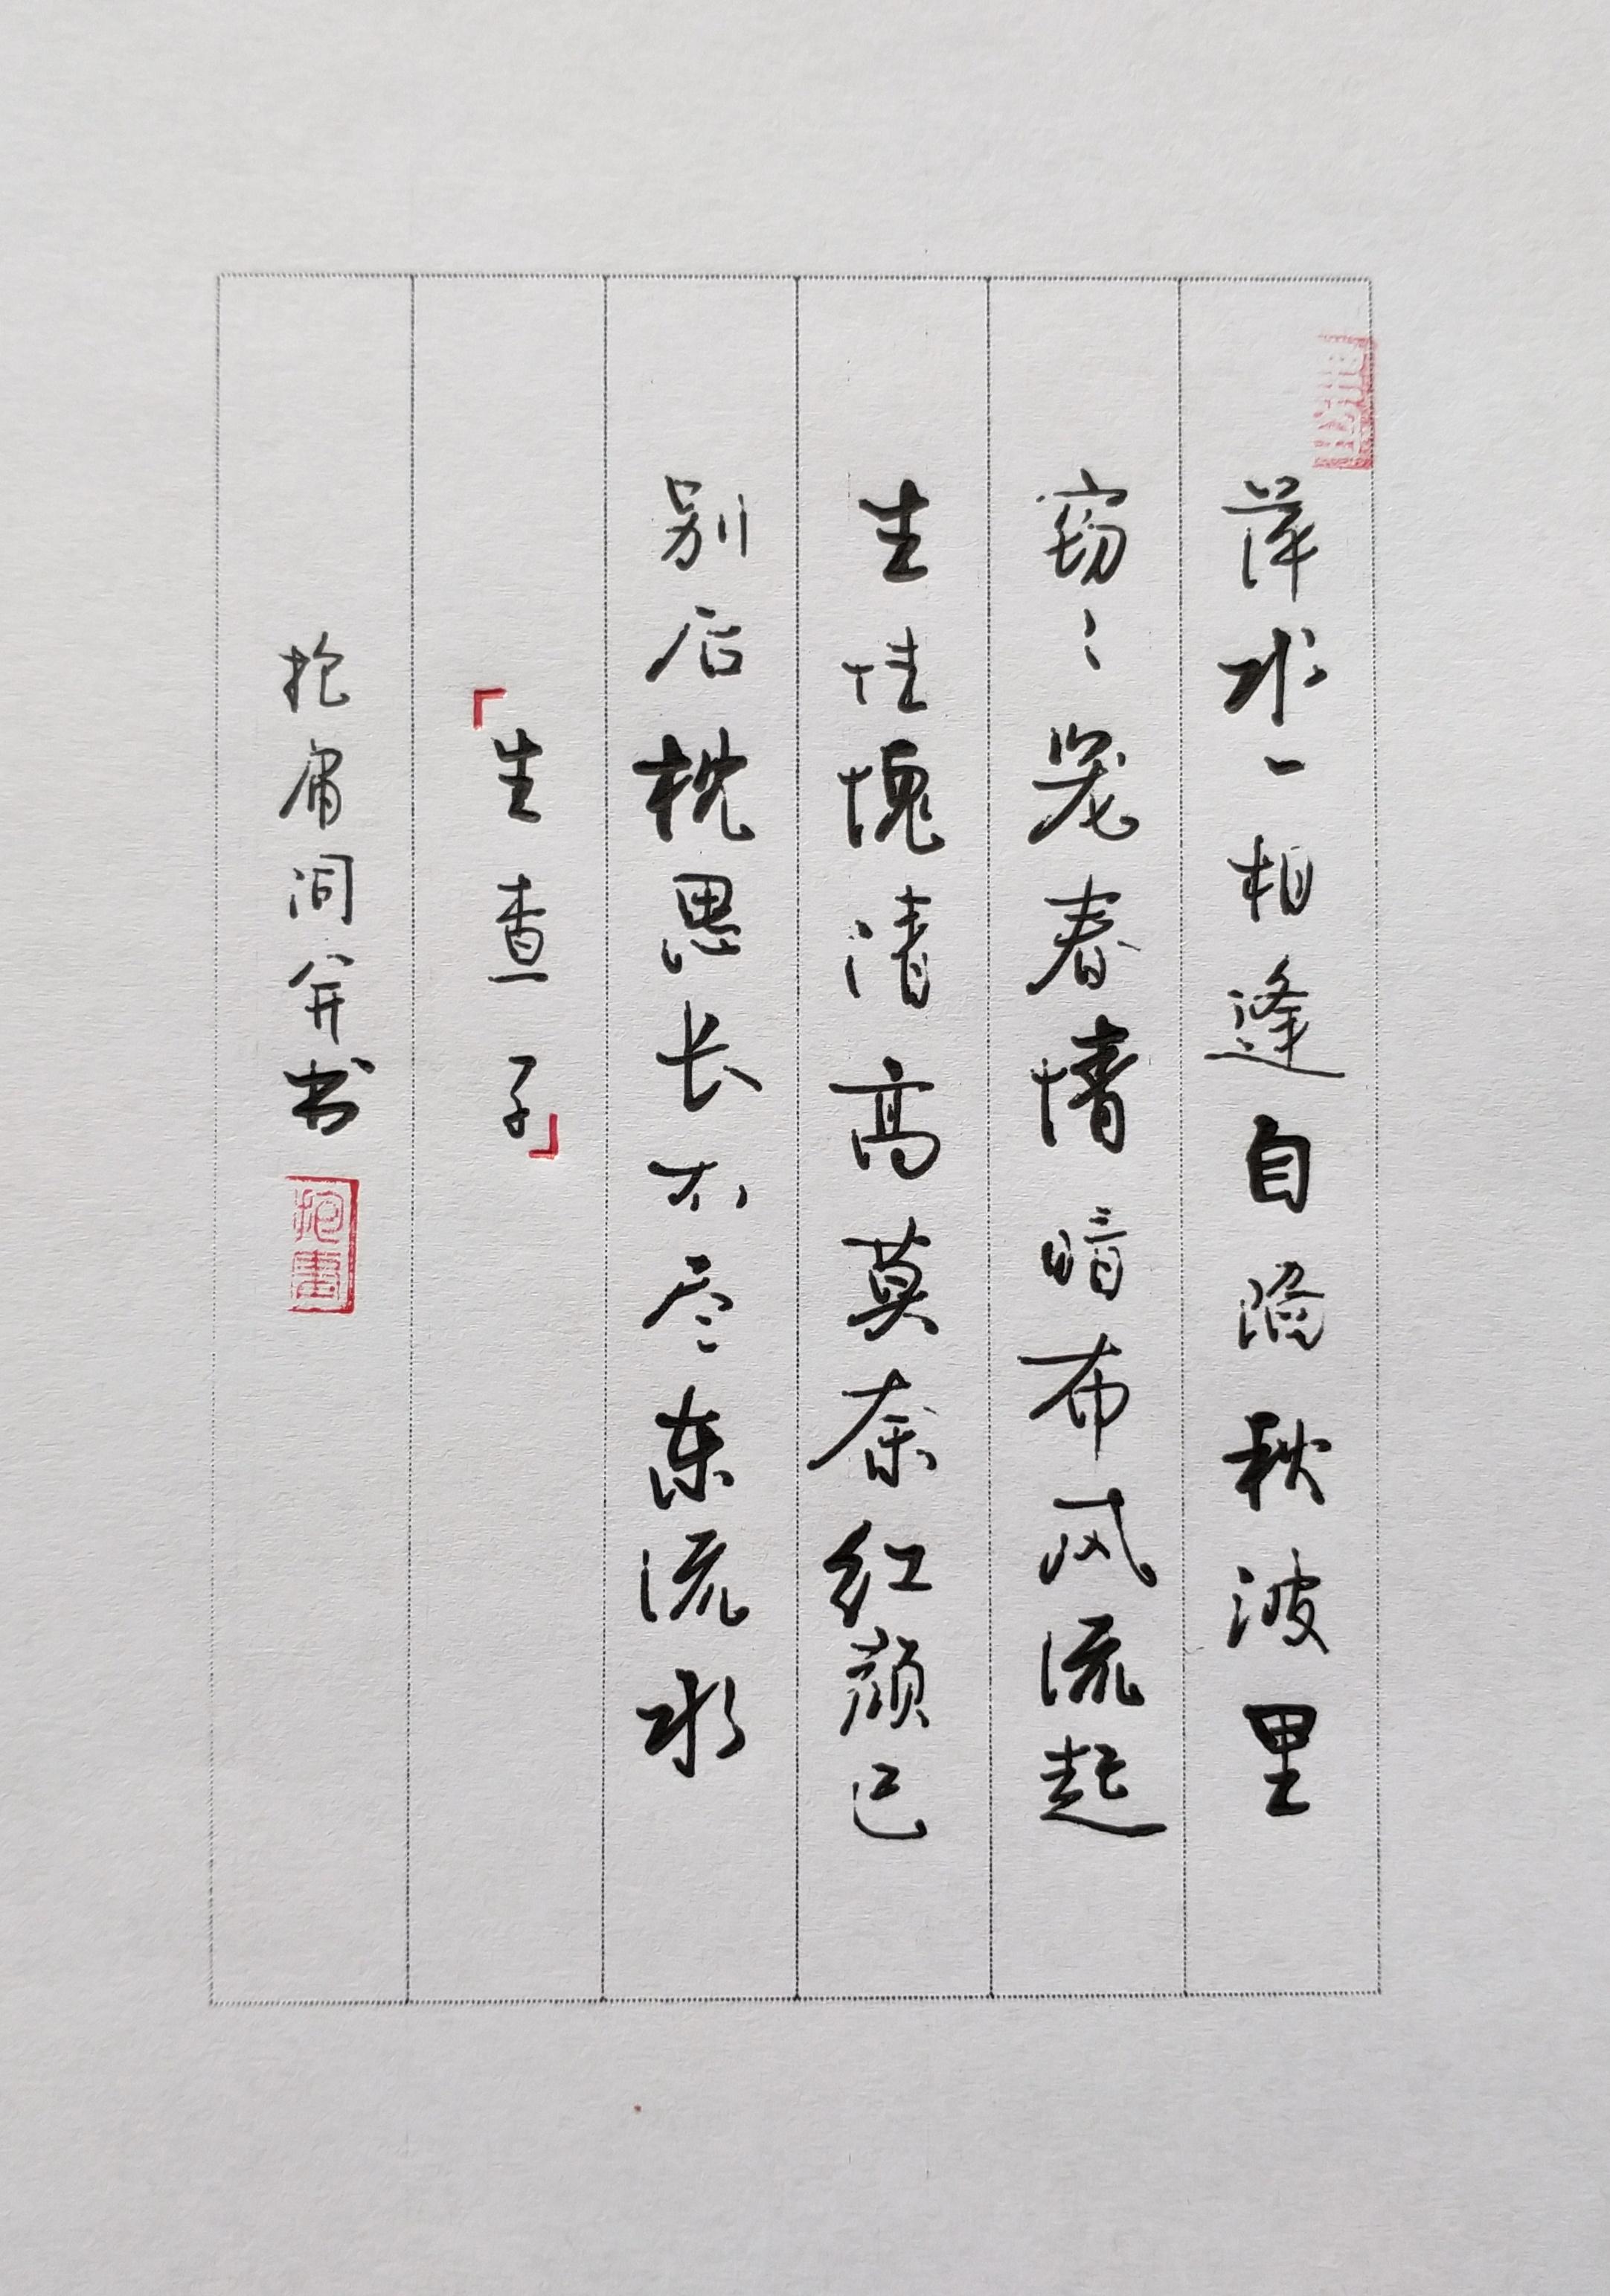 萍水一相逢自陷秋波里
窃〻笼春情暗布风流起
生性愧清高莫奈红颜已
别后枕思长不尽东流水
「生查子」
抱庸词并书
抱書